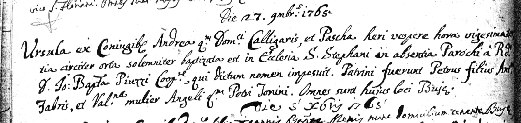 Die 27. 9mbris 1765.
Ursula ex Coniugibus Andrea qm Domci Calligaris, et Pascha Aeri vespere hora vigesima
tia circiter orta solemniter baptizata est in Ecclesia S. Stephani in absentia Parochi à R
D. Jo: Bapta Piuzzi qui dictum nomen imposuit. Patrini fuerunt Petrus filius Ant
Fabris, et mulier Angeli qm Petri Tonini. Omnes sunt hujus loci Buje.
Die 5 Xbris 1765